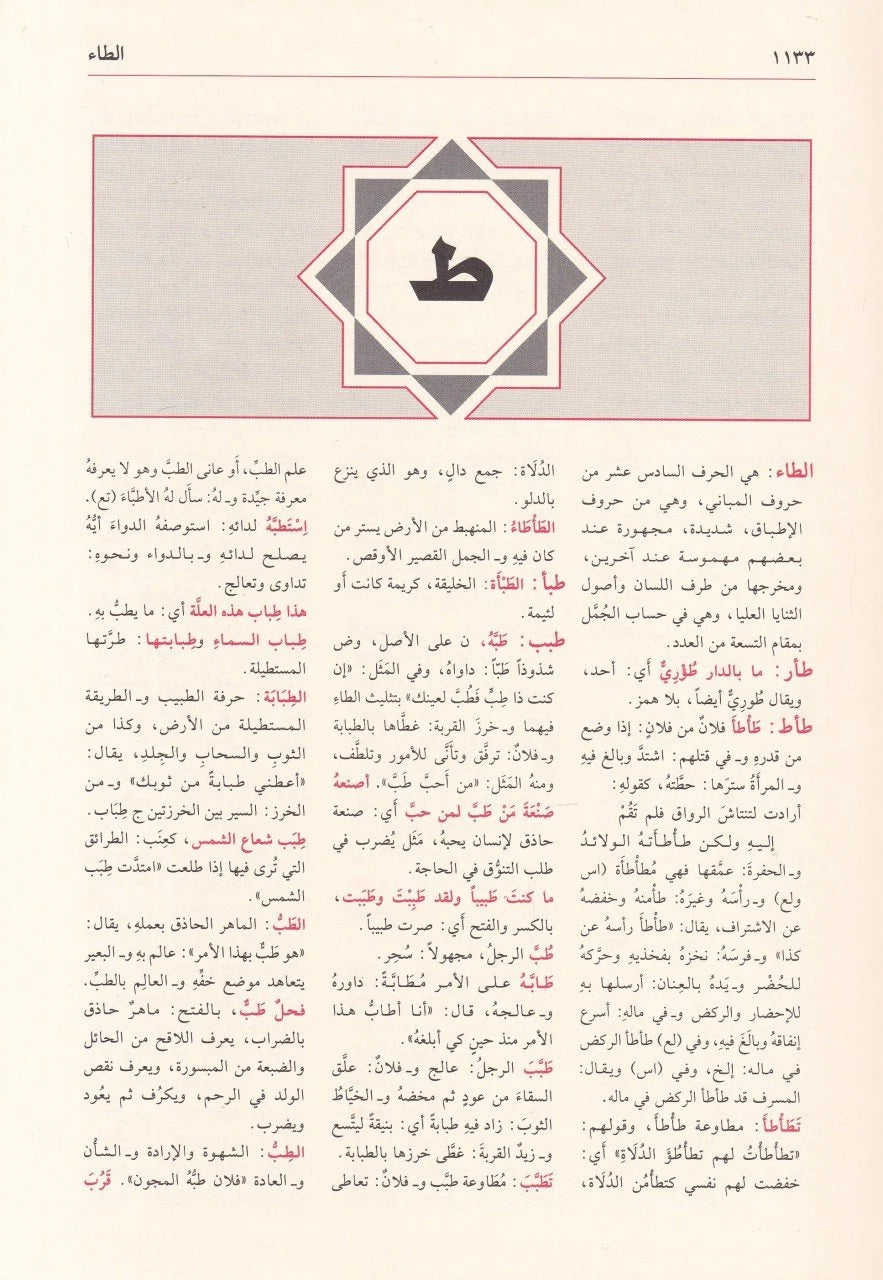 ١١٣٣
الطاء
ط
الطاء: هي الحرف السادس عشر من
حروف المباني، وهي من حروف
الإطباق، شديدة، مجهورة عند
بعضهم مهموسة عند آخرين،
ومخرجها من طرف اللسان وأصول
الثنايا العليا، وهي في حساب الجُمَّل
بمقام التسعة من العدد.
طأر: ما بالدار طُؤْرِيٌّ أي: أحد،
ويقال طُورِيٌّ أيضاً، بلا همز.
طأط: طَأْطَأَ فلانٌ من فلانٍ: إذا وضع
من قدرهِ وـ في قتلهم: اشتدَّ وبالغ فيهِ
وـ المرأَةُ سترَها: حطَّتهُ، كقولهِ:
أرادت لتنتاشَ الرواق فلم تَقُمْ
إليهِ ولكن طأْطأَتهُ الولائدُ
وـ الحفرةَ: عمَّقها فهي مُطأْطأَة (اس
ولع) وـ رأْسَهُ وغيرَهُ: طأْمنهُ وخفضهُ
عن الاشتراف، يقال: «طأْطأَ رأسهُ عن
كذا» وـ فرسَهُ: نخزهُ بفخذيهِ وحرَّكهُ
للحُضْر وـ يَدهُ بالعِنان: أرسلها بهِ
للإحضار والركض وـ في مالهِ: أسرع
إنفاقهُ وبالَغَ فيهِ، وفي (لع) طأطأ الركض
في ماله: إلخ، وفي (اس) ويقال:
المسرف قد طأطأ الركض في ماله.
تَطَأْطأَ: مطاوعة طأْطأَ، وقولهم:
«تطأطأْتُ لهم تطأطُؤَ الدُلَاةِ» أي:
خفضت لهم نفسي كتطأْمُن الدُلَاة،
الدُلَاة: جمع دالٍ، وهو الذي ينزع
بالدلو.
الطَأْطَاءُ: المنهبط من الأرض يستر من
كان فيهِ وـ الجمل القصير الأوقص.
طبأ: الطَبْأَة: الخليقة، كريمة كانت أو
لئيمة.
طبب: طَبَّهُ، ن على الأصل، وض
شذوذاً طَبّاً: داواهُ، وفي المَثَل: «إن
كنت ذا طِبٍّ فَطُبَّ لعينك» بتثليث الطاءِ
فيهما وـ خرزَ القربة: غطَّاها بالطبابة
وـ فلانٌ: ترفَّق وتأَنَّى للأمور وتلطَّف،
ومنهُ المَثَل: «من أَحبَّ طَبَّ». أصنعهُ
صَنْعَةَ مَنْ طَبَّ لمن حبَّ أي: صنعة
حاذق لإنسان يحبهُ، مَثَل يُضرب في
طلب التنوُّق في الحاجة.
ما كنتَ طَبيباً ولقد طَبِبْتَ وطَبَبت،
بالكسر والفتح أي: صرت طبيباً.
طُبَّ الرجلُ، مجهولاً: سُحِر.
طَابَّهُ على الأمر مُطَابَّةً: داورهُ
وـ عالجهُ، قال: «أنا أطابُّ هذا
الأمر منذ حينٍ كي أبلغهُ».
طَبَّبَ الرجلُ: عالج وـ فلانٌ: علَّق
السقاءَ من عودٍ ثم مخضهُ وـ الخيَّاطُ
الثوبَ: زاد فيهِ طبابة أي: بنيقةً ليتَّسع
وـ زيدٌ القربةَ: غطَّى خرزها بالطبابة.
تَطَبَّبَ: مُطَاوعة طبَّب وـ فلانٌ: تعاطى
علم الطبِّ، أو عانى الطبَّ وهو لا يعرفهُ
معرفة جيِّدة وـ لهُ: سأل لهُ الأطبَّاءَ (تع).
اِسْتَطَبَّهُ لدائهِ: استوصفهُ الدواءَ أيُّهُ
يصلح لدائهِ وـ بالدواء ونحوهِ:
تداوى وتعالج.
هذا طِباب هذه العلَّة أي: ما يطبُّ بهِ.
طِباب السماءِ وطِبابتها: طرَّتها
المستطيلة.
الطِبَابَة: حرفة الطبيب وـ الطريقة
المستطيلة من الأرض، وكذا من
الثوبِ والسحابِ والجِلدِ، يقال:
«أعطني طبابةً من ثوبك» وـ من
الخرز: السير بين الخرزتين ج طِبَاب.
طِبَب شعاع الشمس، كعِنَب: الطرائق
التي تُرى فيها إذا طلعت «امتدَّت طِبَب
الشمس».
الطَبُّ: الماهر الحاذق بعملهِ، يقال:
«هو طَبٌّ بهذا الأمر»: عالم بهِ وـ البعير
يتعاهد موضع خفِّهِ وـ العالِم بالطبِّ.
فحلٌ طَبٌّ، بالفتح: ماهرٌ حاذق
بالضراب، يعرف اللاقح من الحائل
والضبعة من المبسورة، ويعرف نقص
الولد في الرحم، ويكرُف ثم يعُود
ويضرب.
الطِبُّ: الشهوة والإرادة وـ الشأْن
وـ العادة «فلان طبُّهُ المجون». قَرُبَ